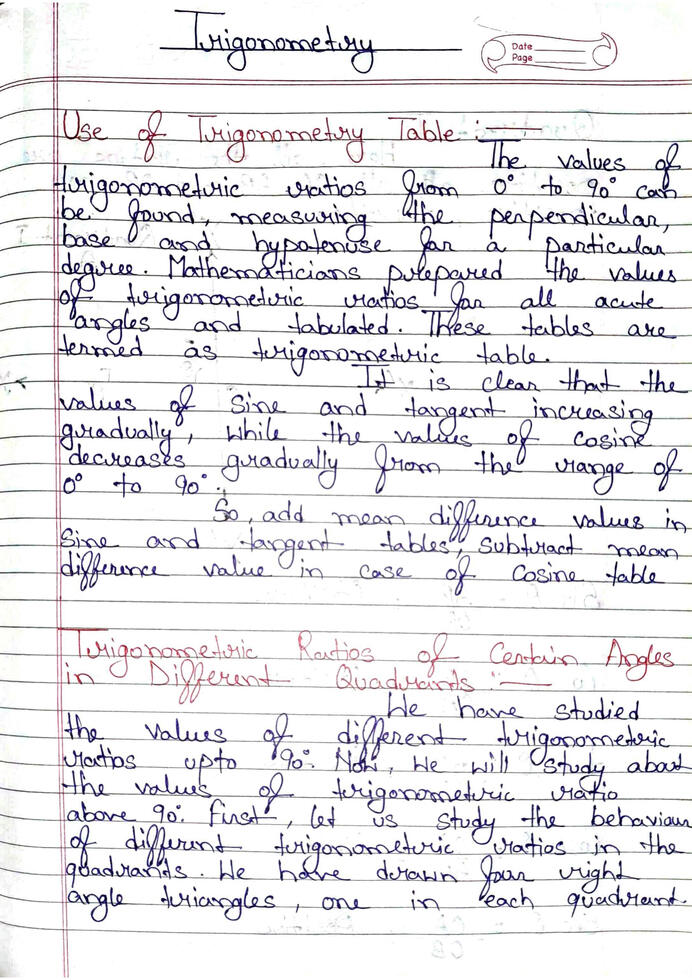 Trigonometry
Date
Page
Use of Trigonometry Table :—
The values of
trigonometric ratios from 0° to 90° can
be found, measuring the perpendicular,
base and hypotenuse for a particular
degree. Mathematicians prepared the values
of trigonometric ratios for all acute
angles and tabulated. These tables are
termed as trigonometric table.
It is clear that the
values of Sine and tangent increasing
gradually, while the values of cosine
decreases gradually from the range of
0° to 90°.
So, add mean difference values in
Sine and tangent tables, subtract mean
difference value in case of Cosine table
Trigonometric Ratios of Certain Angles
in Different Quadrants :—
We have studied
the values of different trigonometric
ratios upto 90°. Now, we will study about
the values of trigonometric ratio
above 90°. First, let us study the behaviour
of different trigonometric ratios in the
quadrants. We have drawn four right
angle triangles, one in each quadrant.